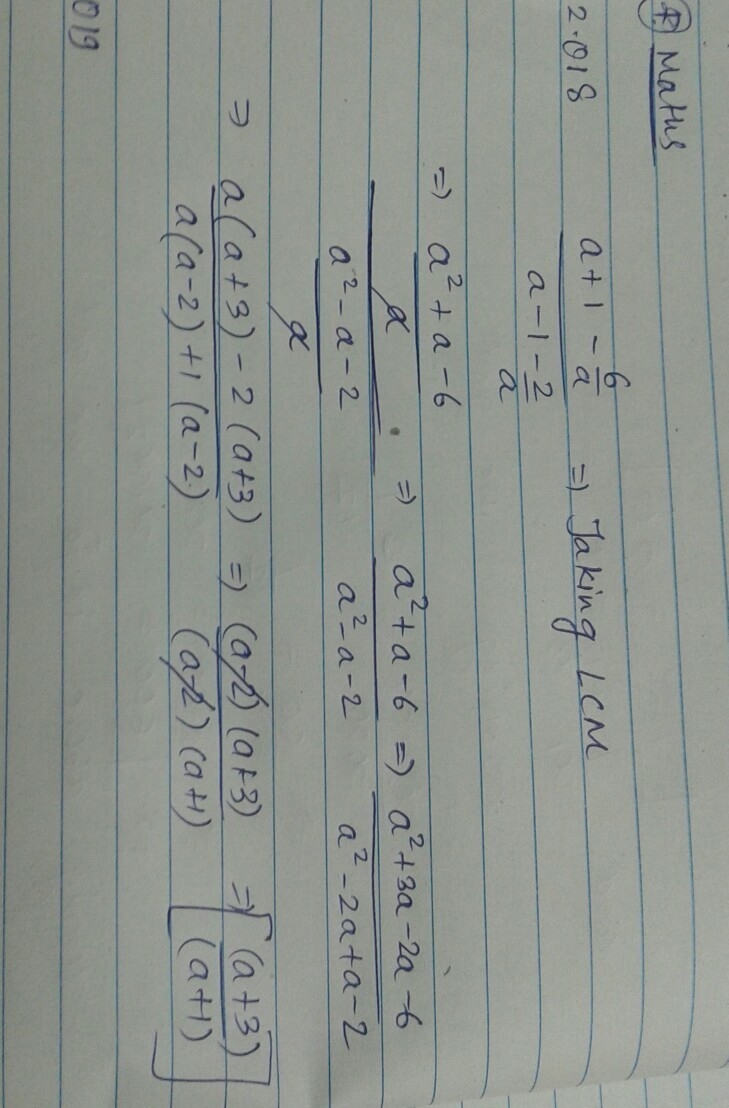 ④ Maths
2.018 (a+1-6/a)/(a-1-2/a) ⇒ Taking LCM
⇒ ((a²+a-6)/a)/((a²-a-2)/a) ⇒ (a²+a-6)/(a²-a-2) ⇒ (a²+3a-2a-6)/(a²-2a+a-2)
⇒ (a(a+3)-2(a+3))/(a(a-2)+1(a-2)) ⇒ ((a-2)(a+3))/((a-2)(a+1)) ⇒ (a+3)/(a+1)
019